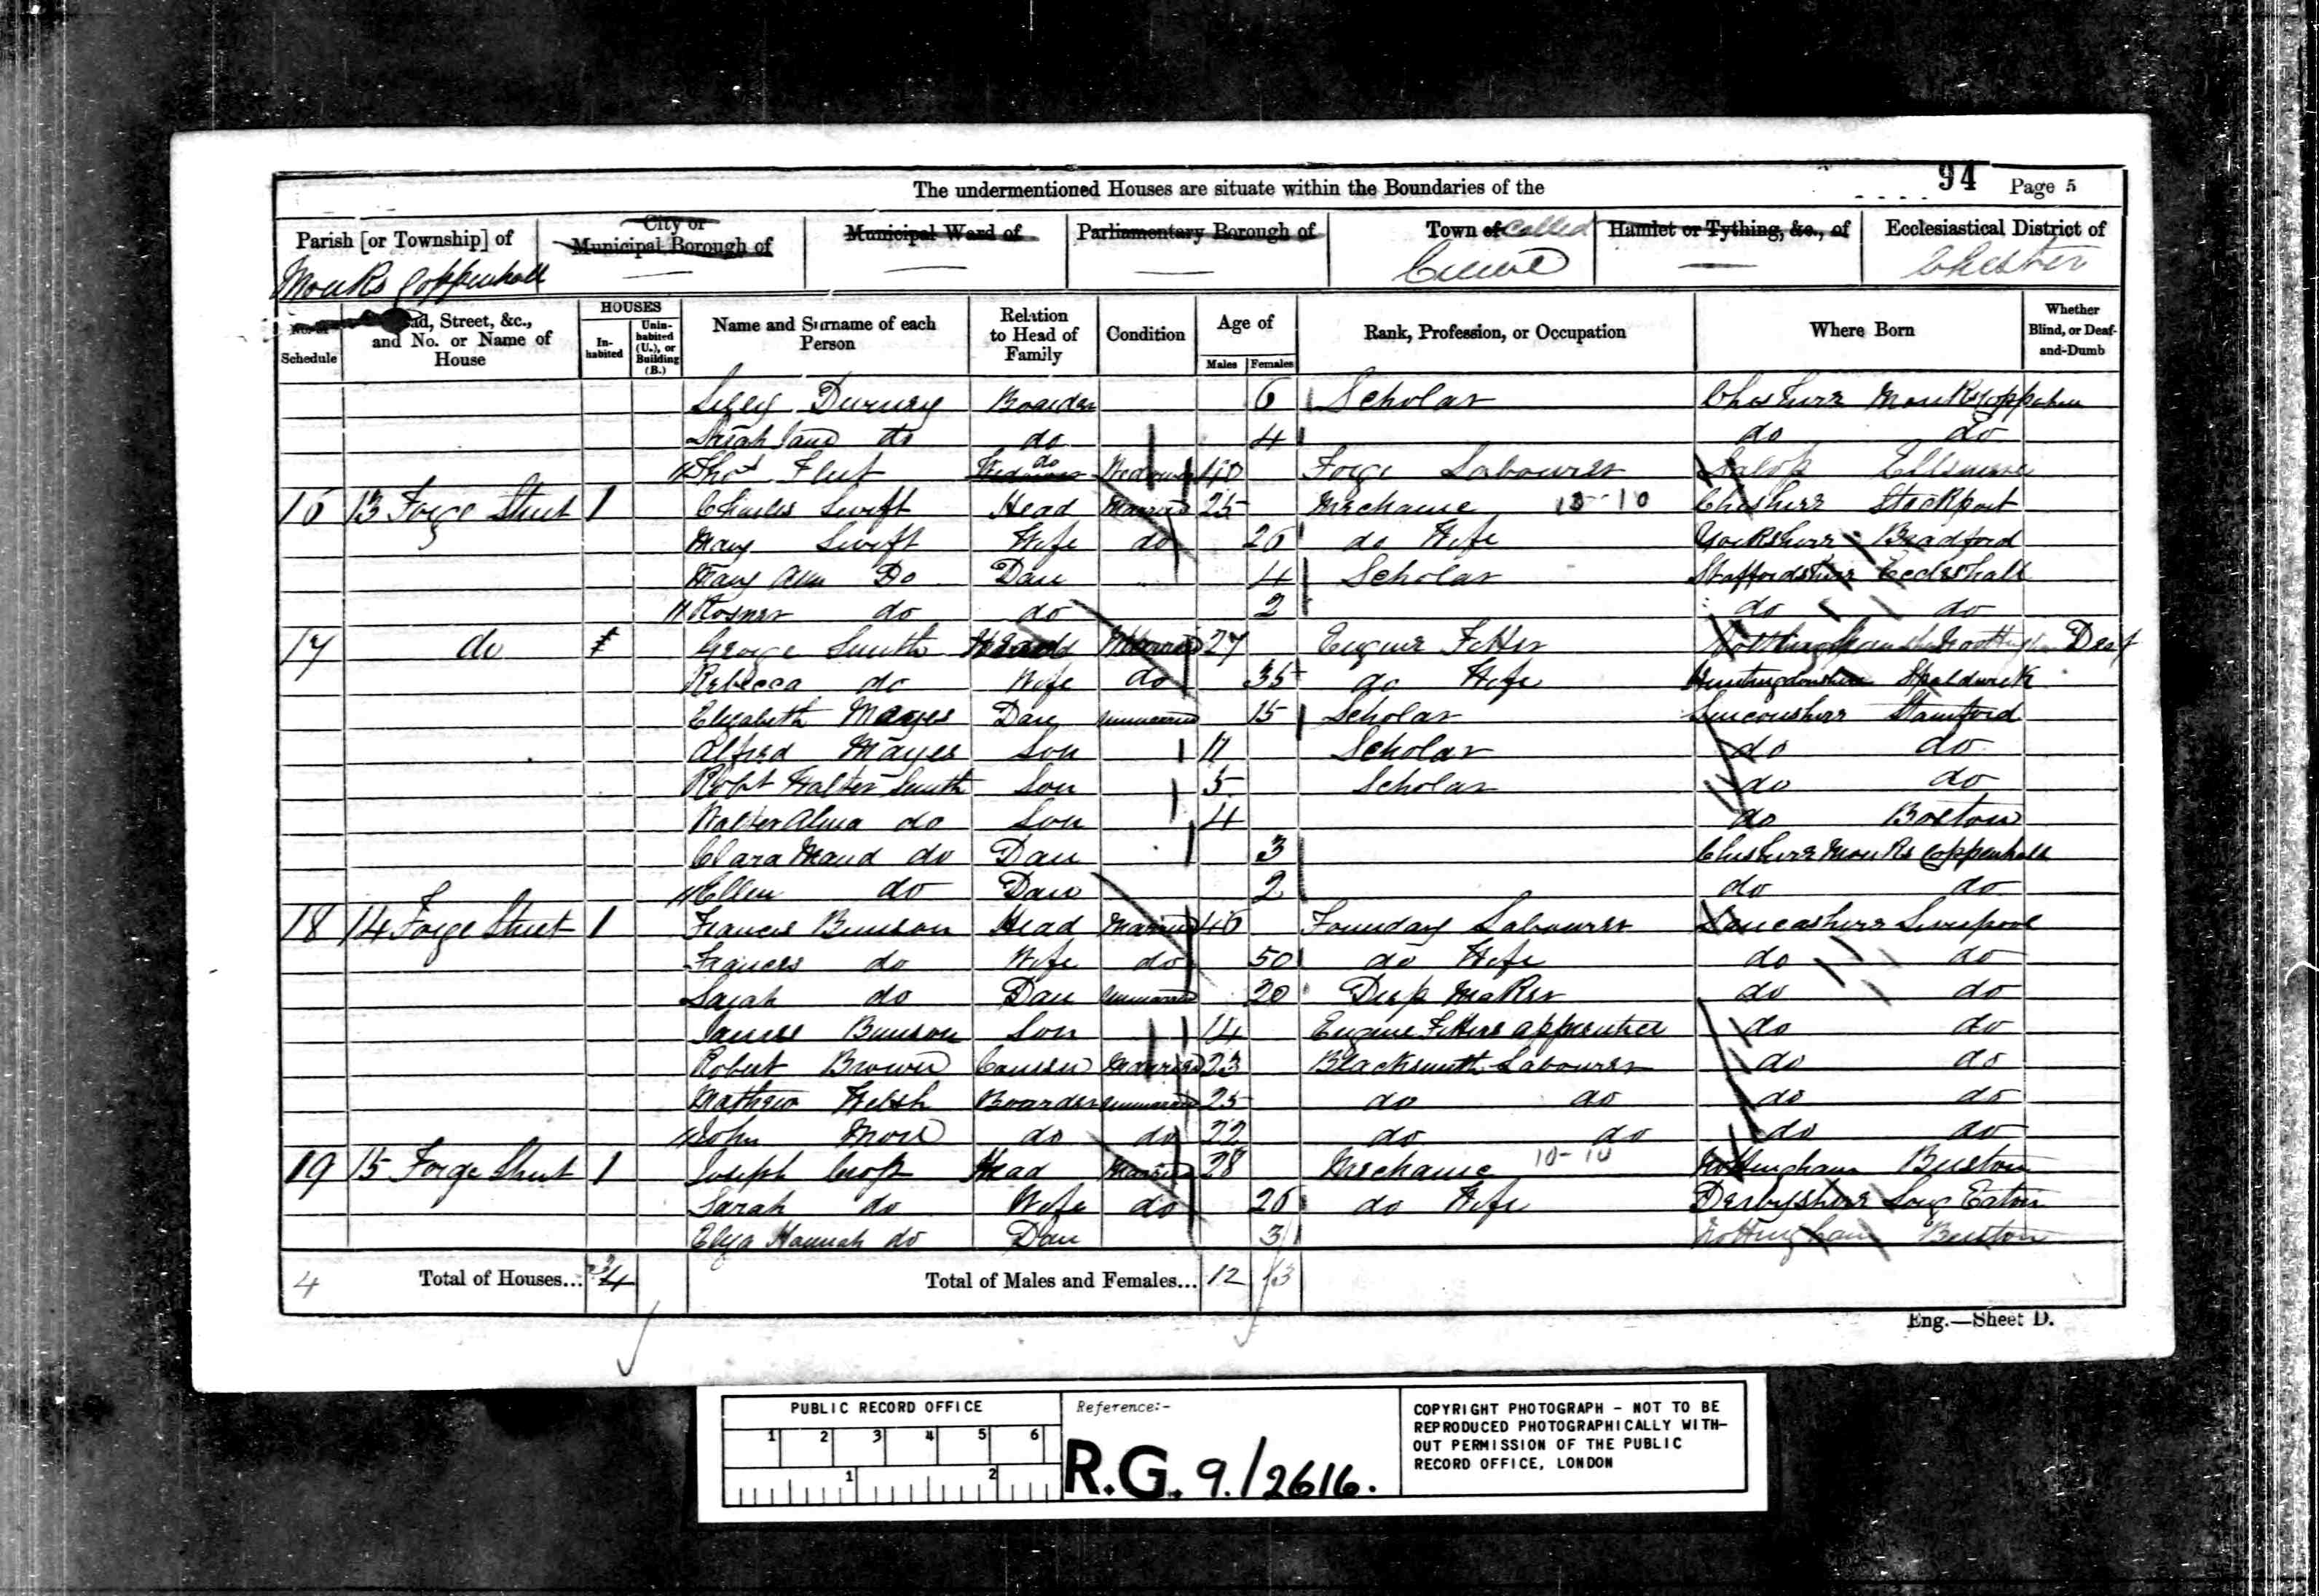 94 Page 5
The undermentioned Houses are situate within the Boundaries of the
Parish [or Township] of City or Municipal Borough of Municipal Ward of Parliamentary Borough of Town of called Hamlet or Tything, &c., of Ecclesiastical District of
Monks Coppenhall Crewe Chester
No. of Schedule Road, Street, &c., and No. or Name of House HOUSES In-habited Unin-habited (U.), or Building (B.) Name and Surname of each Person Relation to Head of Family Condition Age of Males Females Rank, Profession, or Occupation Where Born Whether Blind, or Deaf-and-Dumb
Boarder 6 Scholar Cheshire Monks Coppenhall
Sarah Jane do do 4 do do
Thos Widower do Widower 40 Forge Labourer Salop Ellsmere
16 13 Forge Street 1 Charles Swift Head Married 25 Mechanic 10-10 Cheshire Stockport
Mary Swift Wife do 26 do Wife Yorkshire Bradford
Mary Ann Do Dau 4 Scholar Staffordshire
do do 2 do do
17 do George Smith Head Married 27 Engine Fitter Deaf
Rebecca do Wife do 35 do Wife Huntingdonshire Spaldwick
Elizabeth Mayes Dau Unmarried 15 Scholar Lincolnshire Stamford
Alfred Mayes Son 11 Scholar do do
Robt Walter Smith Son 5 Scholar do do
Walter Alma do Son 4 do Boston
Clara Maud do Dau 3 Cheshire Monks Coppenhall
Ellen do Dau 2 do do
18 14 Forge Street 1 Francis Head Married 46 Foundary Labourer Lancashire Liverpool
Frances do Wife do 50 do Wife do do
Sarah do Dau Unmarried 20 Maker do do
James Son 14 Engine Fitters apprentice do do
Robert Brown Married 23 Blacksmith Labourer do do
Mathew Welsh Boarder Unmarried 25 do do do do
John do do 22 do do do do
19 15 Forge Street 1 Joseph Head Married 28 Mechanic 10-10 Nottingham
Sarah do Wife do 26 do Wife Derbyshire Long Eaton
Eliza Hannah do Dau 3 Nottingham
4 Total of Houses... 4 Total of Males and Females... 12 13
Eng.—Sheet D.
PUBLIC RECORD OFFICE
1 2 3 4 5 6
1 2
Reference:-
R.G. 9./2616.
COPYRIGHT PHOTOGRAPH - NOT TO BE
REPRODUCED PHOTOGRAPHICALLY WITH-
OUT PERMISSION OF THE PUBLIC
RECORD OFFICE, LONDON